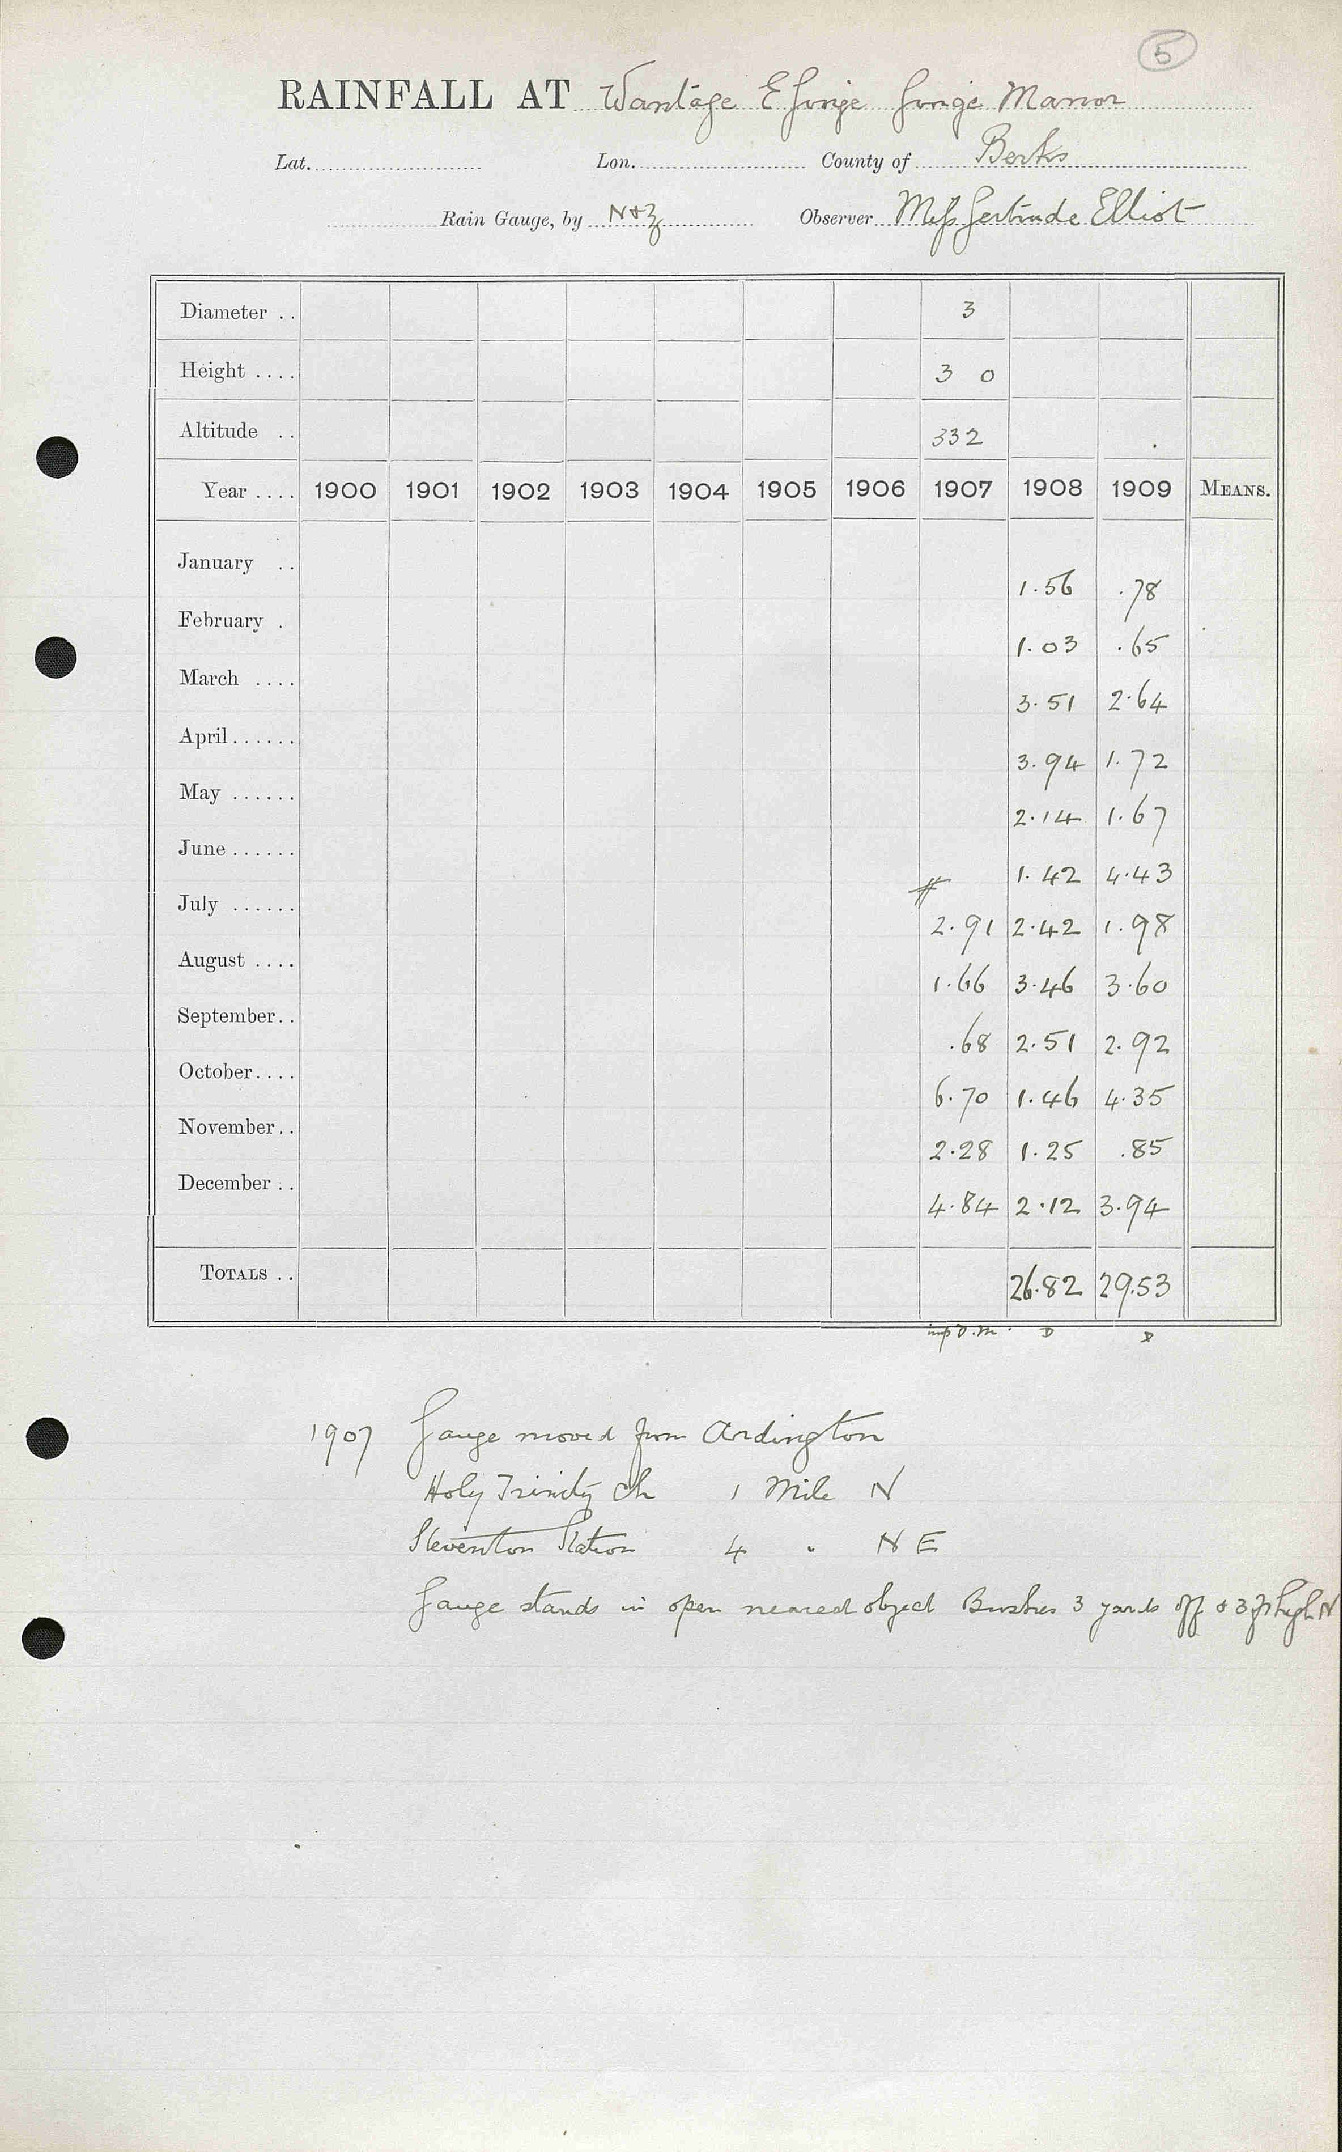 5
RAINFALL AT Wantage E Ginge Ginge Manor
Lat. Lon. County of Berks
Rain Gauge, by N&Z Observer Miss Gertrude Elliot
Diameter .. 3
Height .... 3 0
Altitude .. 332
Year .... 1900 1901 1902 1903 1904 1905 1906 1907 1908 1909 MEANS.
January .. 1.56 .78
February . 1.03 .65
March .... 3.51 2.64
April...... 3.94 1.72
May ...... 2.14 1.67
June...... 1.42 4.43
July ...... # 2.91 2.42 1.98
August .... 1.66 3.46 3.60
September.. .68 2.51 2.92
October.... 6.70 1.46 4.35
November.. 2.28 1.25 .85
December .. 4.84 2.12 3.94
TOTALS .. 26.82 29.53
imp D.M. D D
1907 Gauge moved from Ardington
Holy Trinity Ch 1 Mile N
Steventon Station 4 " N E
Gauge stands in open nearest object Bushes 3 yards off & 3 ft high N